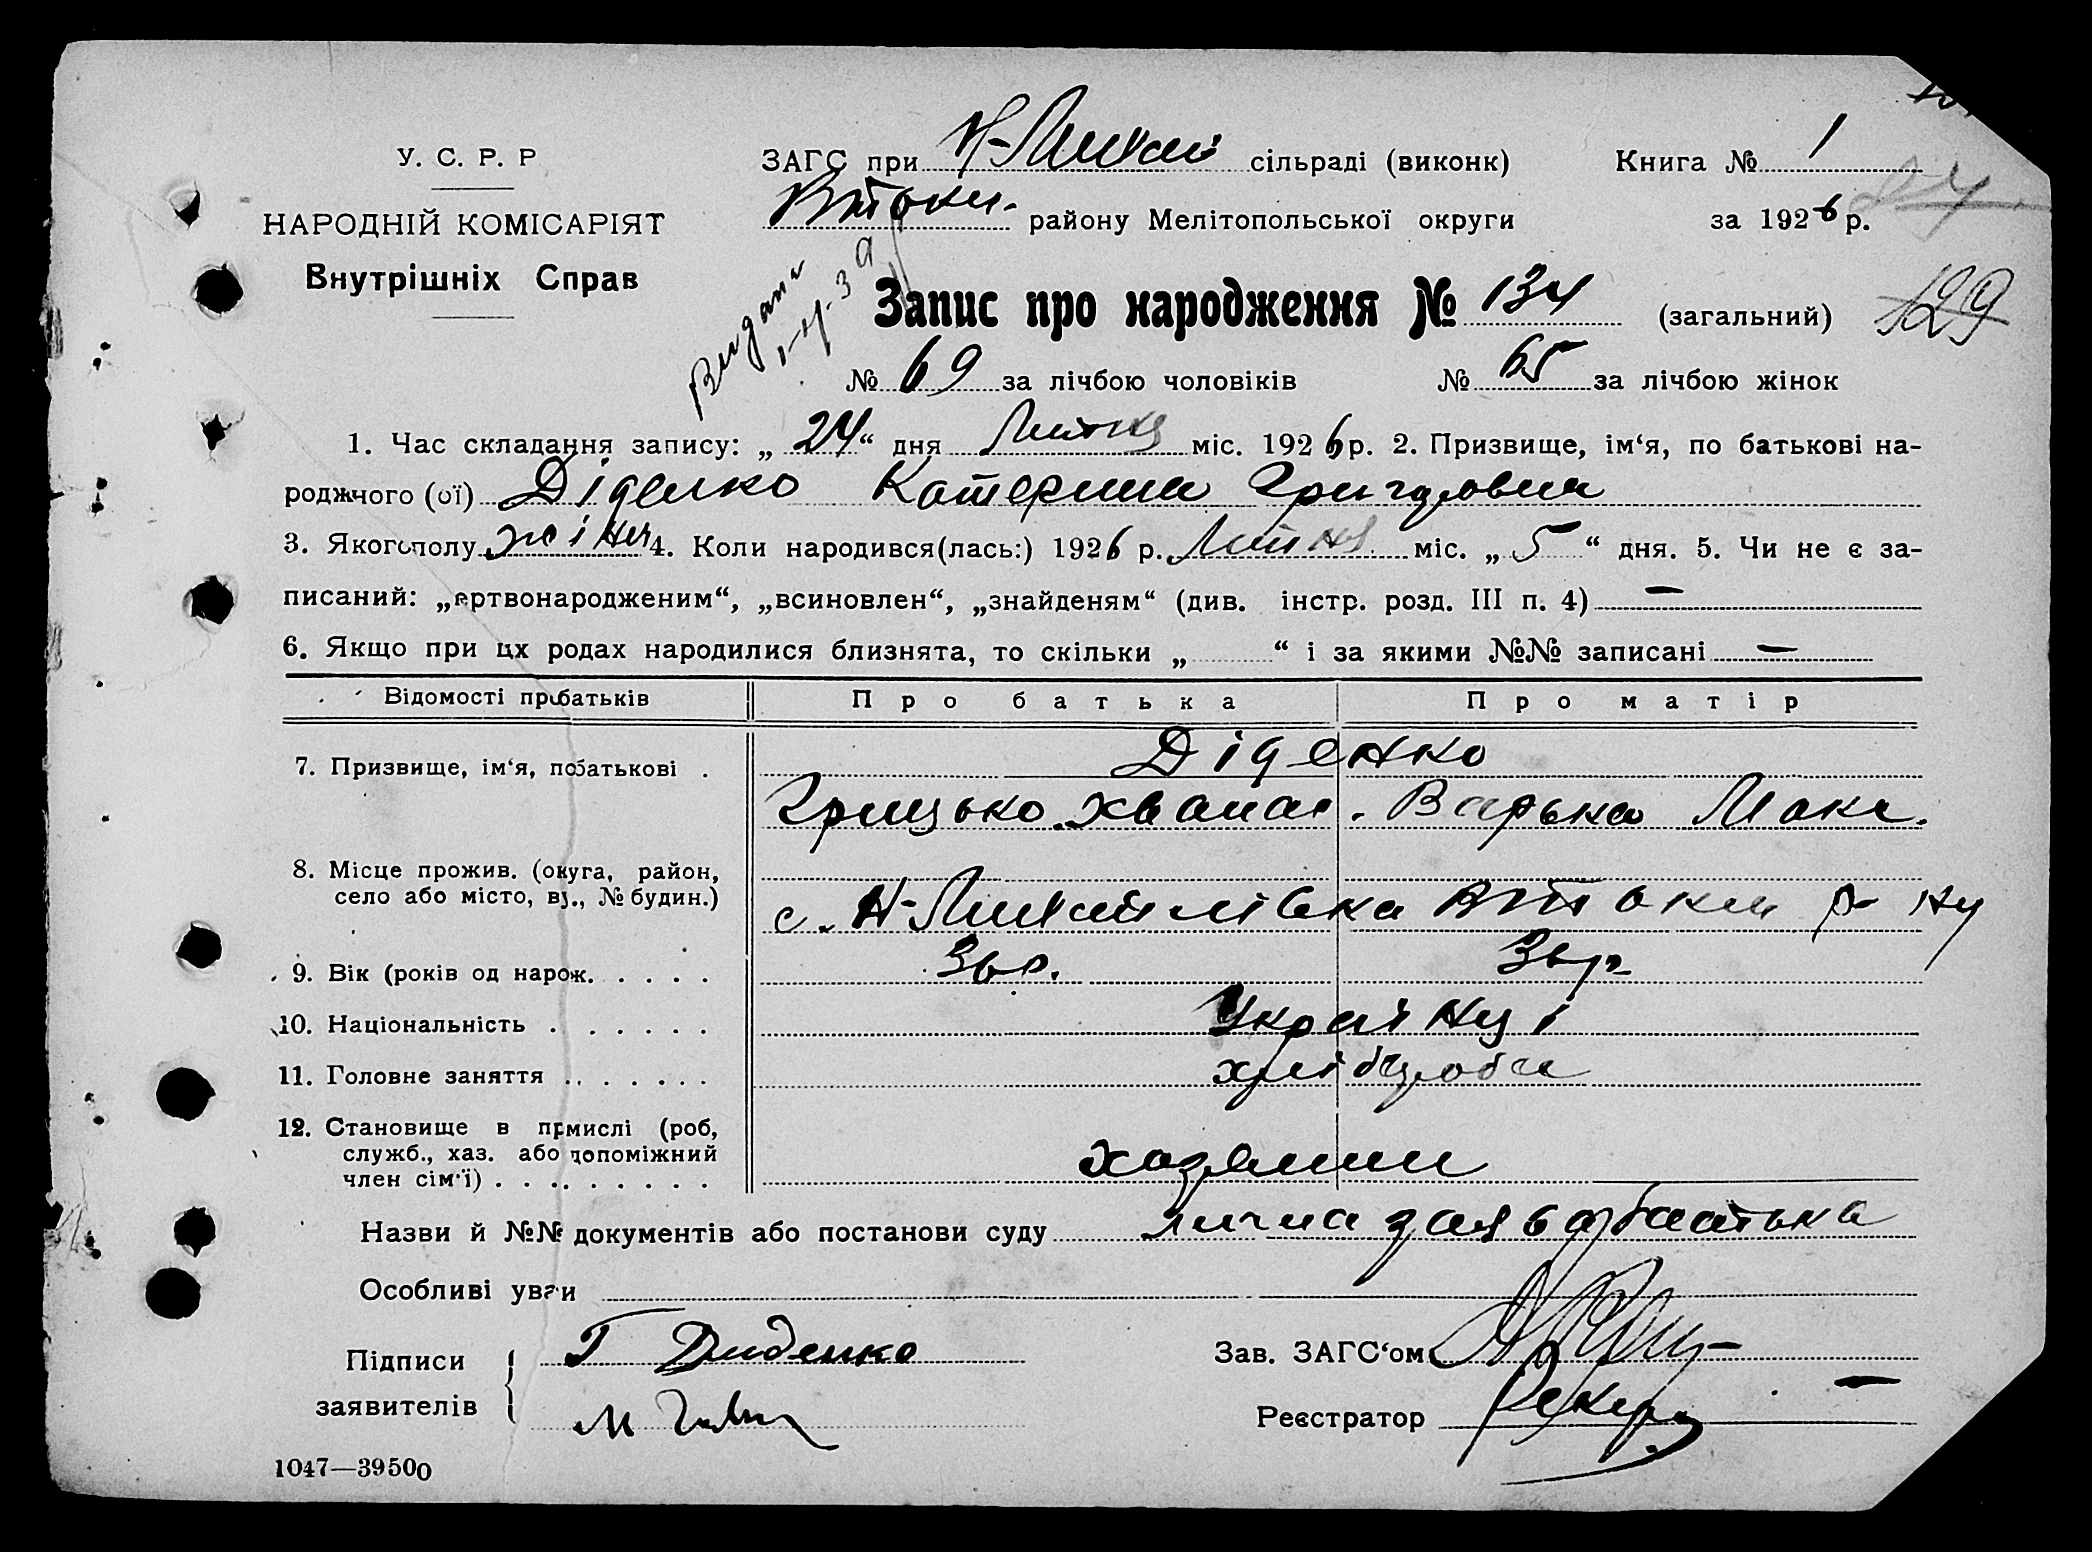 У. С. Р. Р
НАРОДНІЙ КОМІСАРІЯТ
Внутрішніх Справ
ЗАГС при Н-Михай сільраді (виконк)
району Мелітопольської округи
Книга № 1
за 1926 р.
Видана
Запис про народження № 134 (загальний)
129
№ 69 за лічбою чоловіків № 65 за лічбою жінок
1. Час складання запису: „ 24 “ дня Липня міс. 1926 р. 2. Призвище, ім‘я, по батькові на-
роджчого (ої) Діденко Катерина Григоровна
3. Якого полу жіноч 4. Коли народився(лась:) 1926 р. Липня міс. „ 5 “ дня. 5. Чи не є за-
писаний: „ертвонародженим“, „всиновлен“, „знайденям“ (див. інстр. розд. III п. 4) —
6. Якщо при цх родах народилися близнята, то скільки „ “ і за якими №№ записані —
Відомості пробатьків Про батька Про матір
7. Призвище, ім‘я, побатькові . Діденко
Грицько Хванас. Варька Макс.
8. Місце прожив. (окуга, район,
село або місто, ву., № будин.) с. Н-Михайлівка р-ну
9. Вік (років од нарож. . . . . . 36 р. 36 р
10. Національність . . . . . . . Українці
11. Головне заняття . . . . . . . хлібороби
12. Становище в прмислі (роб,
служб., хаз. або допоміжний
член сім‘ї) . . . . . . . . . хазяини
Назви й №№ документів або постанови суду лична заява батька
Особливі уваги
Підписи
заявителів
Г Диденко
Зав. ЗАГС‘ом
Реєстратор
1047—39500